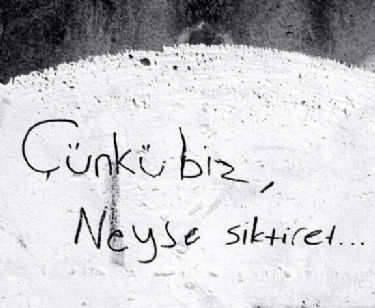 Çünkü biz,
Neyse siktiret...